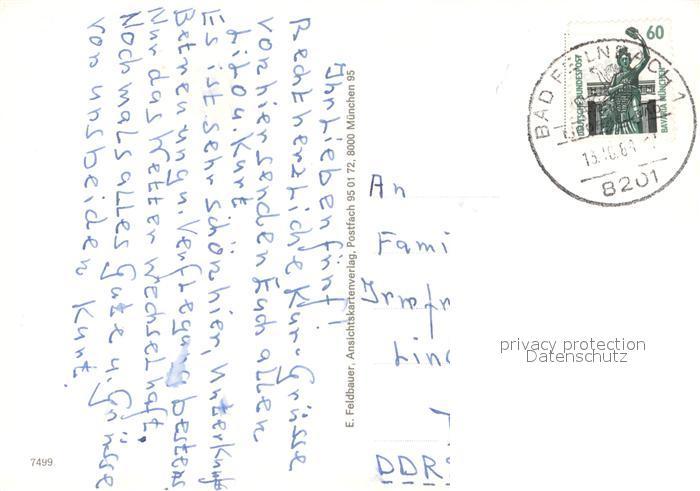 Ihr lieben fünf!
Recht herzliche Kur-Grüsse
von hier senden Euch allen
Lilo u. Kurt
Es ist sehr schön hier, Unterkunft
Betreuung u. Verpflegung bestens
Nur das Wetter wechselhaft.
Nochmals alles Gute u. Grüsse
von uns beiden Kurt.
E. Feldbauer, Ansichtskartenverlag, Postfach 95 01 72, 8000 München 95
7499
60
DEUTSCHE BUNDESPOST
BAVARIA MÜNCHEN
BAD FEILNBACH 1
8201
An
Fami
Irmfr
Lin
DDR
privacy protection
Datenschutz